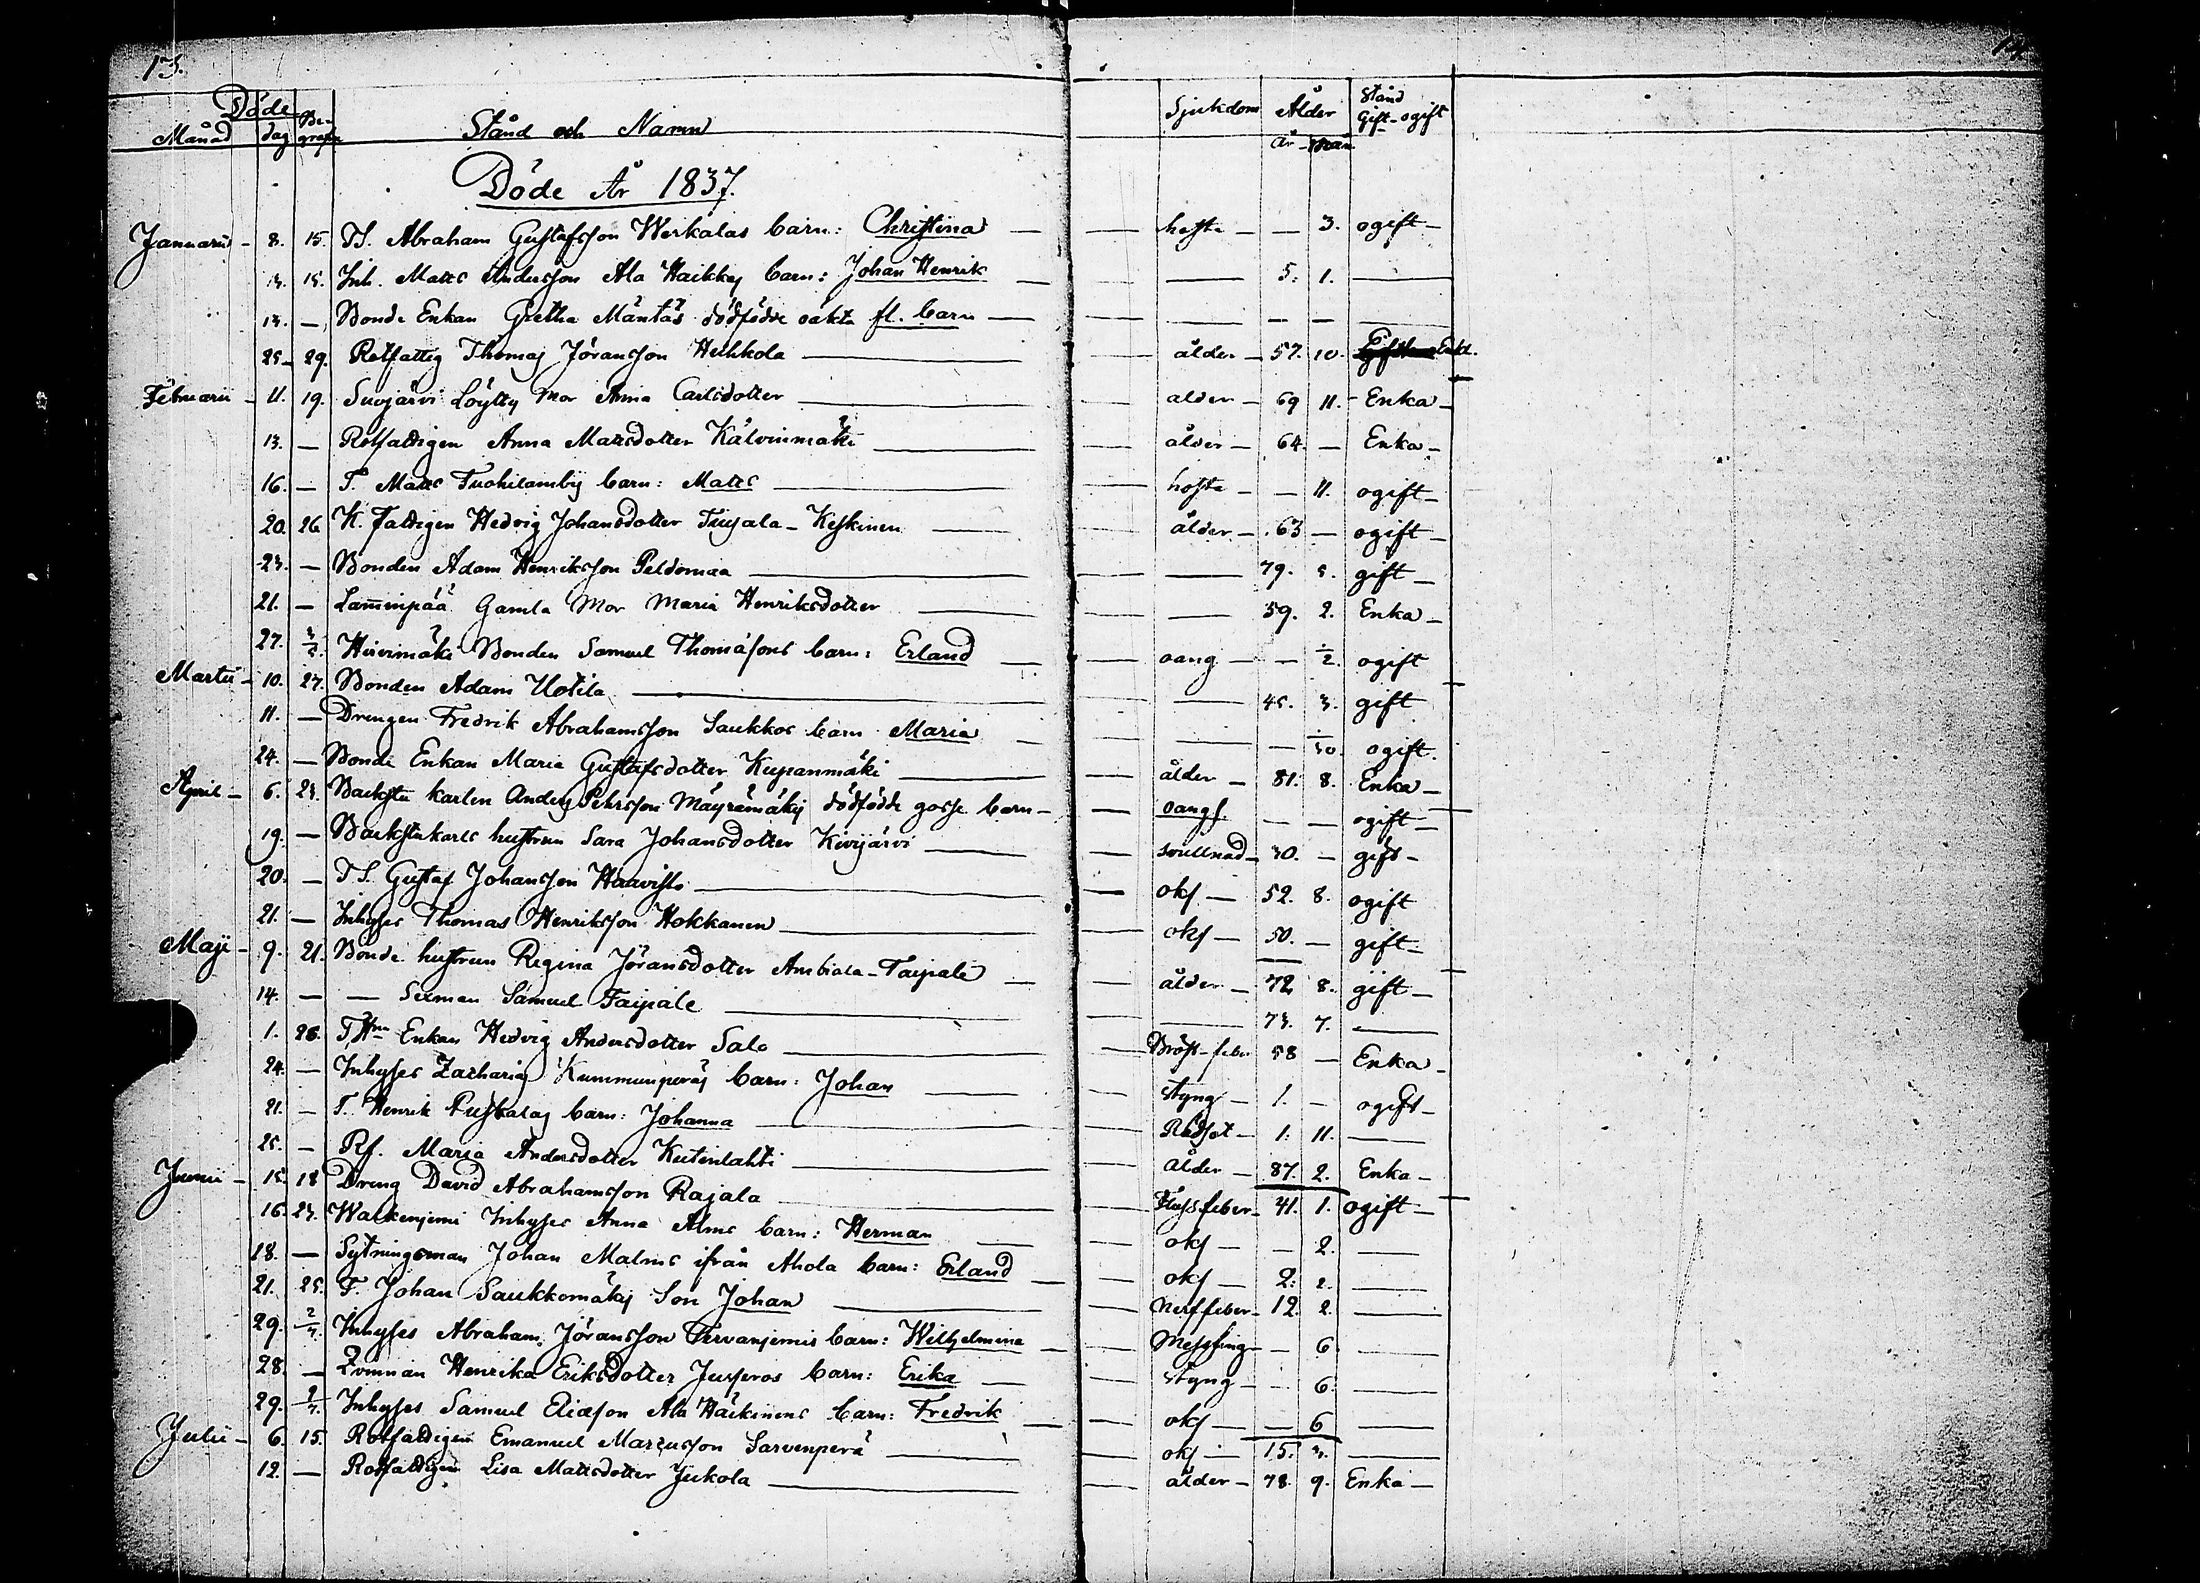 13.
Döde
Månad dag Be-grafn Stånd och Namn Sjukdom Ålder år - mån Stånd Gift - ogift
Döde År 1837.
Januarii - 8. 15. TS. Abraham Gustafsson Werkalas barn: Christina — hosta — — 3. ogift —
13. 15. Inh. Matts Andersson Ala Haikkas barn: Johan Henrik — — 5. 1. —
13. — Bonde Enkan Gretha Mäntäs dödfödde oäkta fl. barn — — — — —
25 - 29. Rotfattig Thomas Jöransson Huhkola — ålder — 57. 10. Enkl.
Februarii - 11. 19. Suojärvi Löytty Mor Anna Carlsdotter — ålder — 69 11. - Enka —
13. — Rotfattigen Anna Mattsdotter Kälvinmäki — ålder — 64. — Enka —
16. — T. Matts Tuohilamby barn: Matts — hosta — — 11. ogift —
20. 26 K. fattigen Hedvig Johansdotter Tuisala - Keskinen — ålder — 63 — ogift —
23. — Bonden Adam Henriksson Peldomaa — — 79. 5. gift —
21. — Lamminpää Gamla Mor Maria Henriksdotter — — 59. 2. Enka —
27. 3/5. Hirvimäki Bonden Samuel Thomasons barn: Erland — oang — — ÷/2. ogift
Martii - 10. 27. Bonden Adam Uotila — — 45. 3. gift
11. — Drengen Fredrik Abrahamsson Saukkos barn Maria — — — ÷/30. ogift.
24. — Bonde Enkan Maria Gustafsdotter Kupanmäki — ålder — 81. 8. Enka —
April - 6. 23. Backstu karlen Anders Pehrsson Mäyrämäkis dödfödde gosse barn — oangf. — — ogift —
19. — Backstukarls hustrun Sara Johansdotter Kivijärvi — svullnad — 30. — gift —
20. — TS. Gustaf Johansson Haavisto — okf — 52. 8. ogift
21. — Inhyses Thomas Henriksson Hokkanen — okf — 50. — gift —
Maji - 9. 21. Bonde hustrun Regina Jöransdotter Ambiala - Taipale — ålder — 72. 8. gift —
14. — — Sexman Samuel Taipale — — 73. 7. —
1. 28. T,Hm Enkan Hedvig Andersdotter Salo — Bröst-feber 58 — Enka —
24. — Inhyses Zacharias Kummunperäs barn: Johan — styng — 1. — ogift —
21. — T. Henrik Puskalas barn: Johanna — Rödsot — 1. 11. —
25. — Rf. Maria Andersdotter Kutinlahti — ålder — 87. 2. Enka —
Junii - 15. 18 Dreng David Abrahamsson Rajala — Flussfeber — 41. 1. ogift —
16. 23. Walkenjemi Inhyses Anna Alms barn: Herman — okf — — 2. —
18. — Sytningsman Johan Malms ifrån Ahola barn: Erland — okf — 2. 2. —
21. 25. T. Johan Saukkomäkis Son Johan — Nerffeber — 12. 2. —
29. 2/7. Inhyses Abraham Jöransson Tervanjemis barn: Wilhelmina — Messling — — 6 —
28. — Qvinnan Henrika Eriksdotter Jusseros barn: Erika — styng — — 6. —
29. 2/7. Inhyses Samuel Ericson Ala Häckinens barn: Fredrik — okf — — 6 —
Julii - 6. 15. Rotfattigen Emanuel Marcusson Sarvenperä — okf — 15. 3. —
12. — Rotfattigen Lisa Mattsdotter Jukola — ålder — 78. 9. Enka —